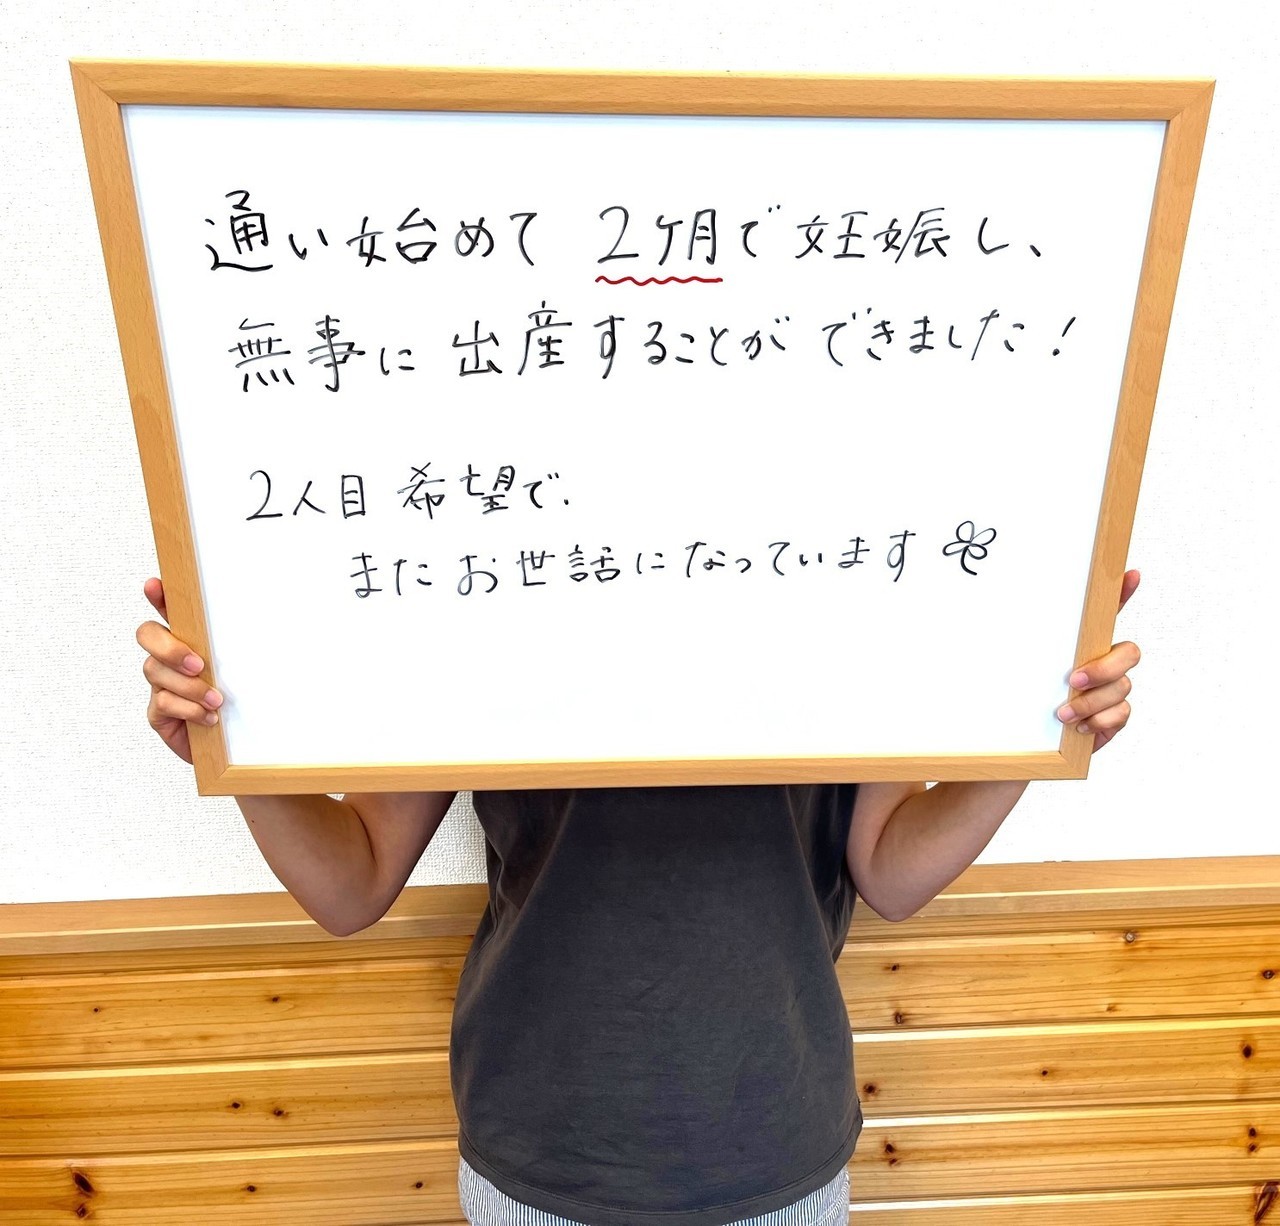 通い始めて 2ヶ月で妊娠し、
無事に出産することができました！
2人目希望で、
またお世話になっています